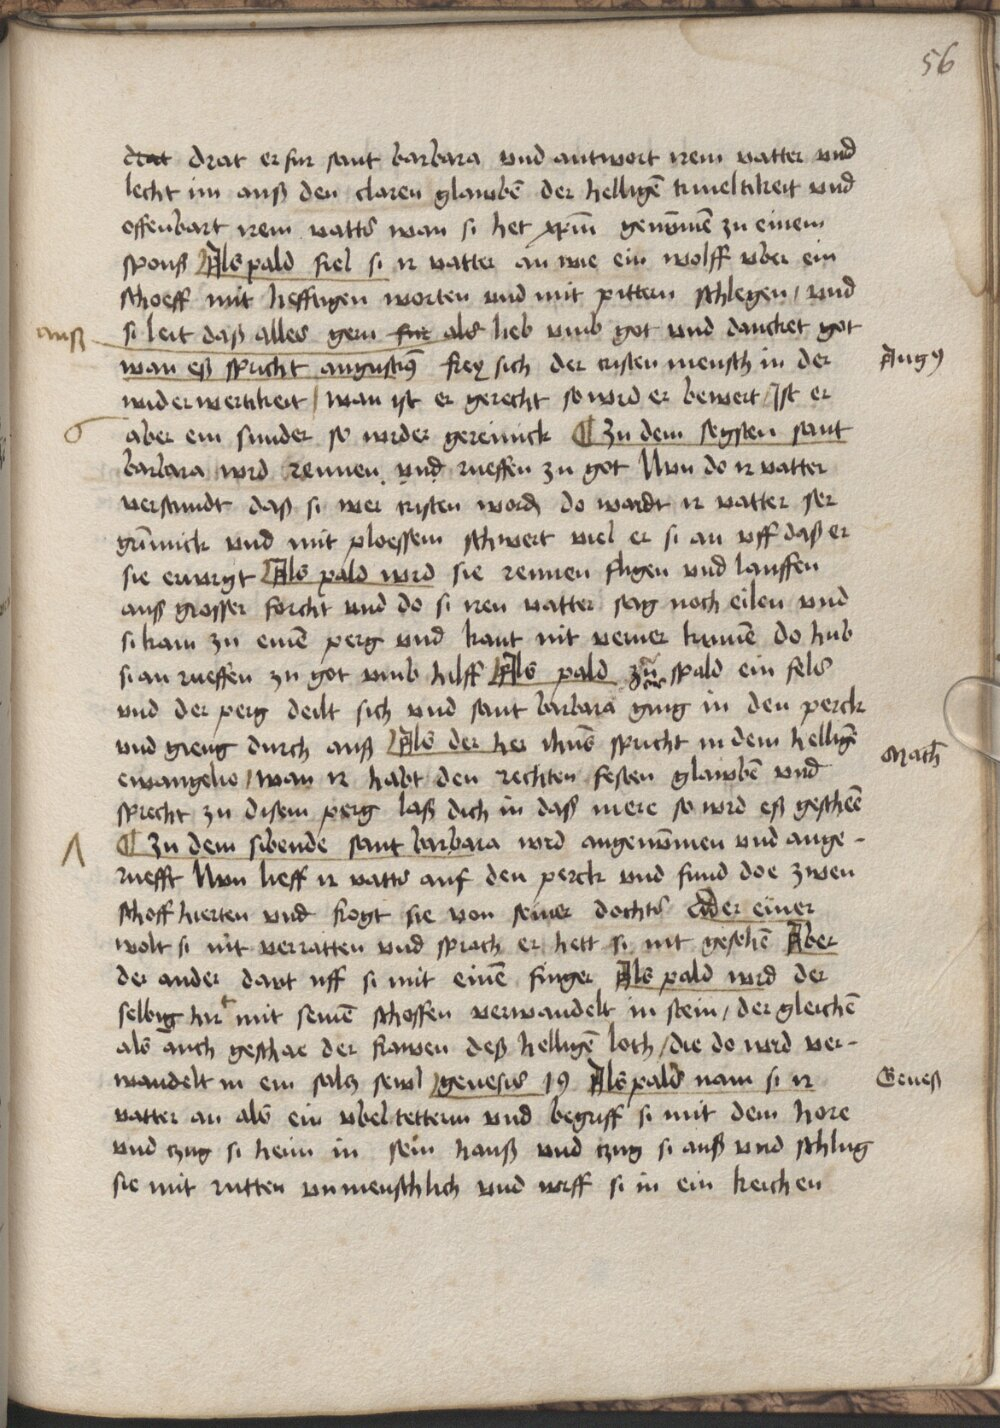 56
drat drat er fur sant barbara vnd antwort irem vatter vnd
lecht im auß den claren glawbē der helligē triueltikeit vnd
offenbart irem vatter wan si het xp̄m genōmē zu einem
spons Als pald fiel si ir vatter an wie ein wolff vber ein
schoeff mit hefftigen worten vnd mit pittern schlegen / vnd
auß
si leit daß alles gern als lieb vmb got vnd dancket got
wan eß spricht augustin9 frey sich der cristen mensch in der
Aug9
widerwertikeit / wan ist er gerecht so wrd er bewert / Ist er
6
aber ein sunder so wirder gereinick ¶ Zu dem segsten sant
barbara wrd rennen vnd rueffen zu got Nun do ir vatter
verstundt daß si wer cristen word do wardt ir vatter ser
grīmick vnd mit ploessem schwert viel er si an vff daß er
sie erwrgt Als pald wrd sie rennen fligen vnd lauffen
auß grosser forcht vnd do si iren vatter sag noch eilen vnd
si kam zu einē perg vnd kant nit verner kumē do hub
si an rueffen zu got vmb hilff Als pald spald ein fels
vnd der perg deilt sich vnd sant barbara ging in den perck
vnd gieng durch auß Als der her ihūs spricht in dem helligē
Math
ewangelio / wan ir habt den rechten festen glawbē vnd
sprecht zu disem perg laß dich in daß mere so wrd eß geschēē
Λ
¶ Zu dem sibende sant barbara wrd angenōmen vnd ange-
ruefft Nun lieff ir vatter auf den perck vnd fund doe zwen
schoff hierten vnd frogt sie von seiner dochter der einer
wolt si nit verratten vnd sprach er hett si nit gesehē Aber
der ander dawt vff si mit einē finger Als pald wrd der
selbig hirt mit seinē schoffen verwandelt in stein / der gleichē
als auch geschae der frawen deß helligē loth / die do wrd ver-
wandelt in ein salz sewl / genesis 19 Als pald nam si ir
Geneß
vatter an als ein vbeltetterin vnd begriff si mit dem hore
vnd czug si heim in sein hauß vnd czug si auß vnd schlug
sie mit rutten vnmenschlich vnd wrff si in ein keichen